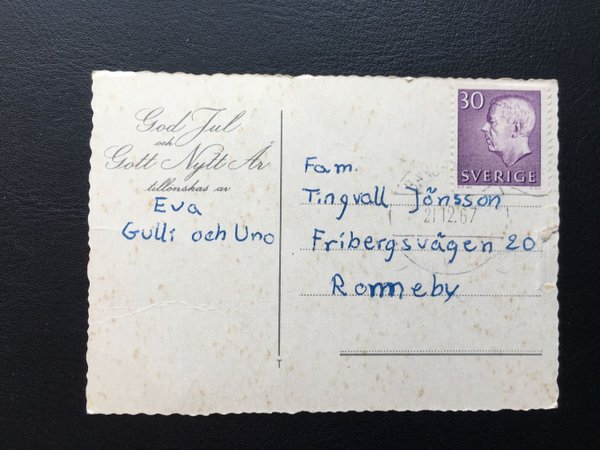 God Jul
och
Gott Nytt År
tillönskas av
Eva
Gulli och Uno
T
30
SVERIGE
21.12.67
Fam.
Tingvall Jönsson
Fribergsvägen 20
Ronneby